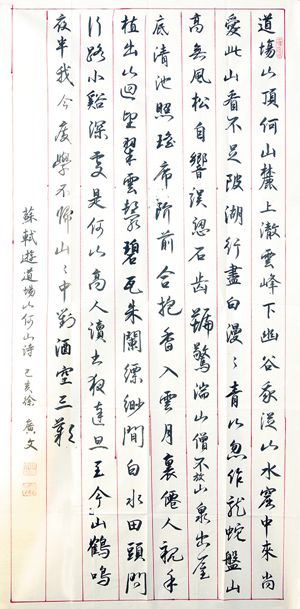 道場山頂何山麓上澈雲峰下幽谷我從山水窟中來尚
愛此山看不足陂湖行盡白漫々青山忽作龍蛇盤山
高無風松自響誤認石齒號驚湍山僧不放山泉出屋
底清池照瑤席階前合抱香入雲月裏僊人親手
植出山迴望翠雲鬟碧瓦朱闌縹緲間白水田頭問
行路小谿深處是何山高人讀書夜達旦至今山鶴鳴
夜半我今廢學不歸山々中對酒空三歎
蘇軾遊道場山何山詩 己亥徐廣文